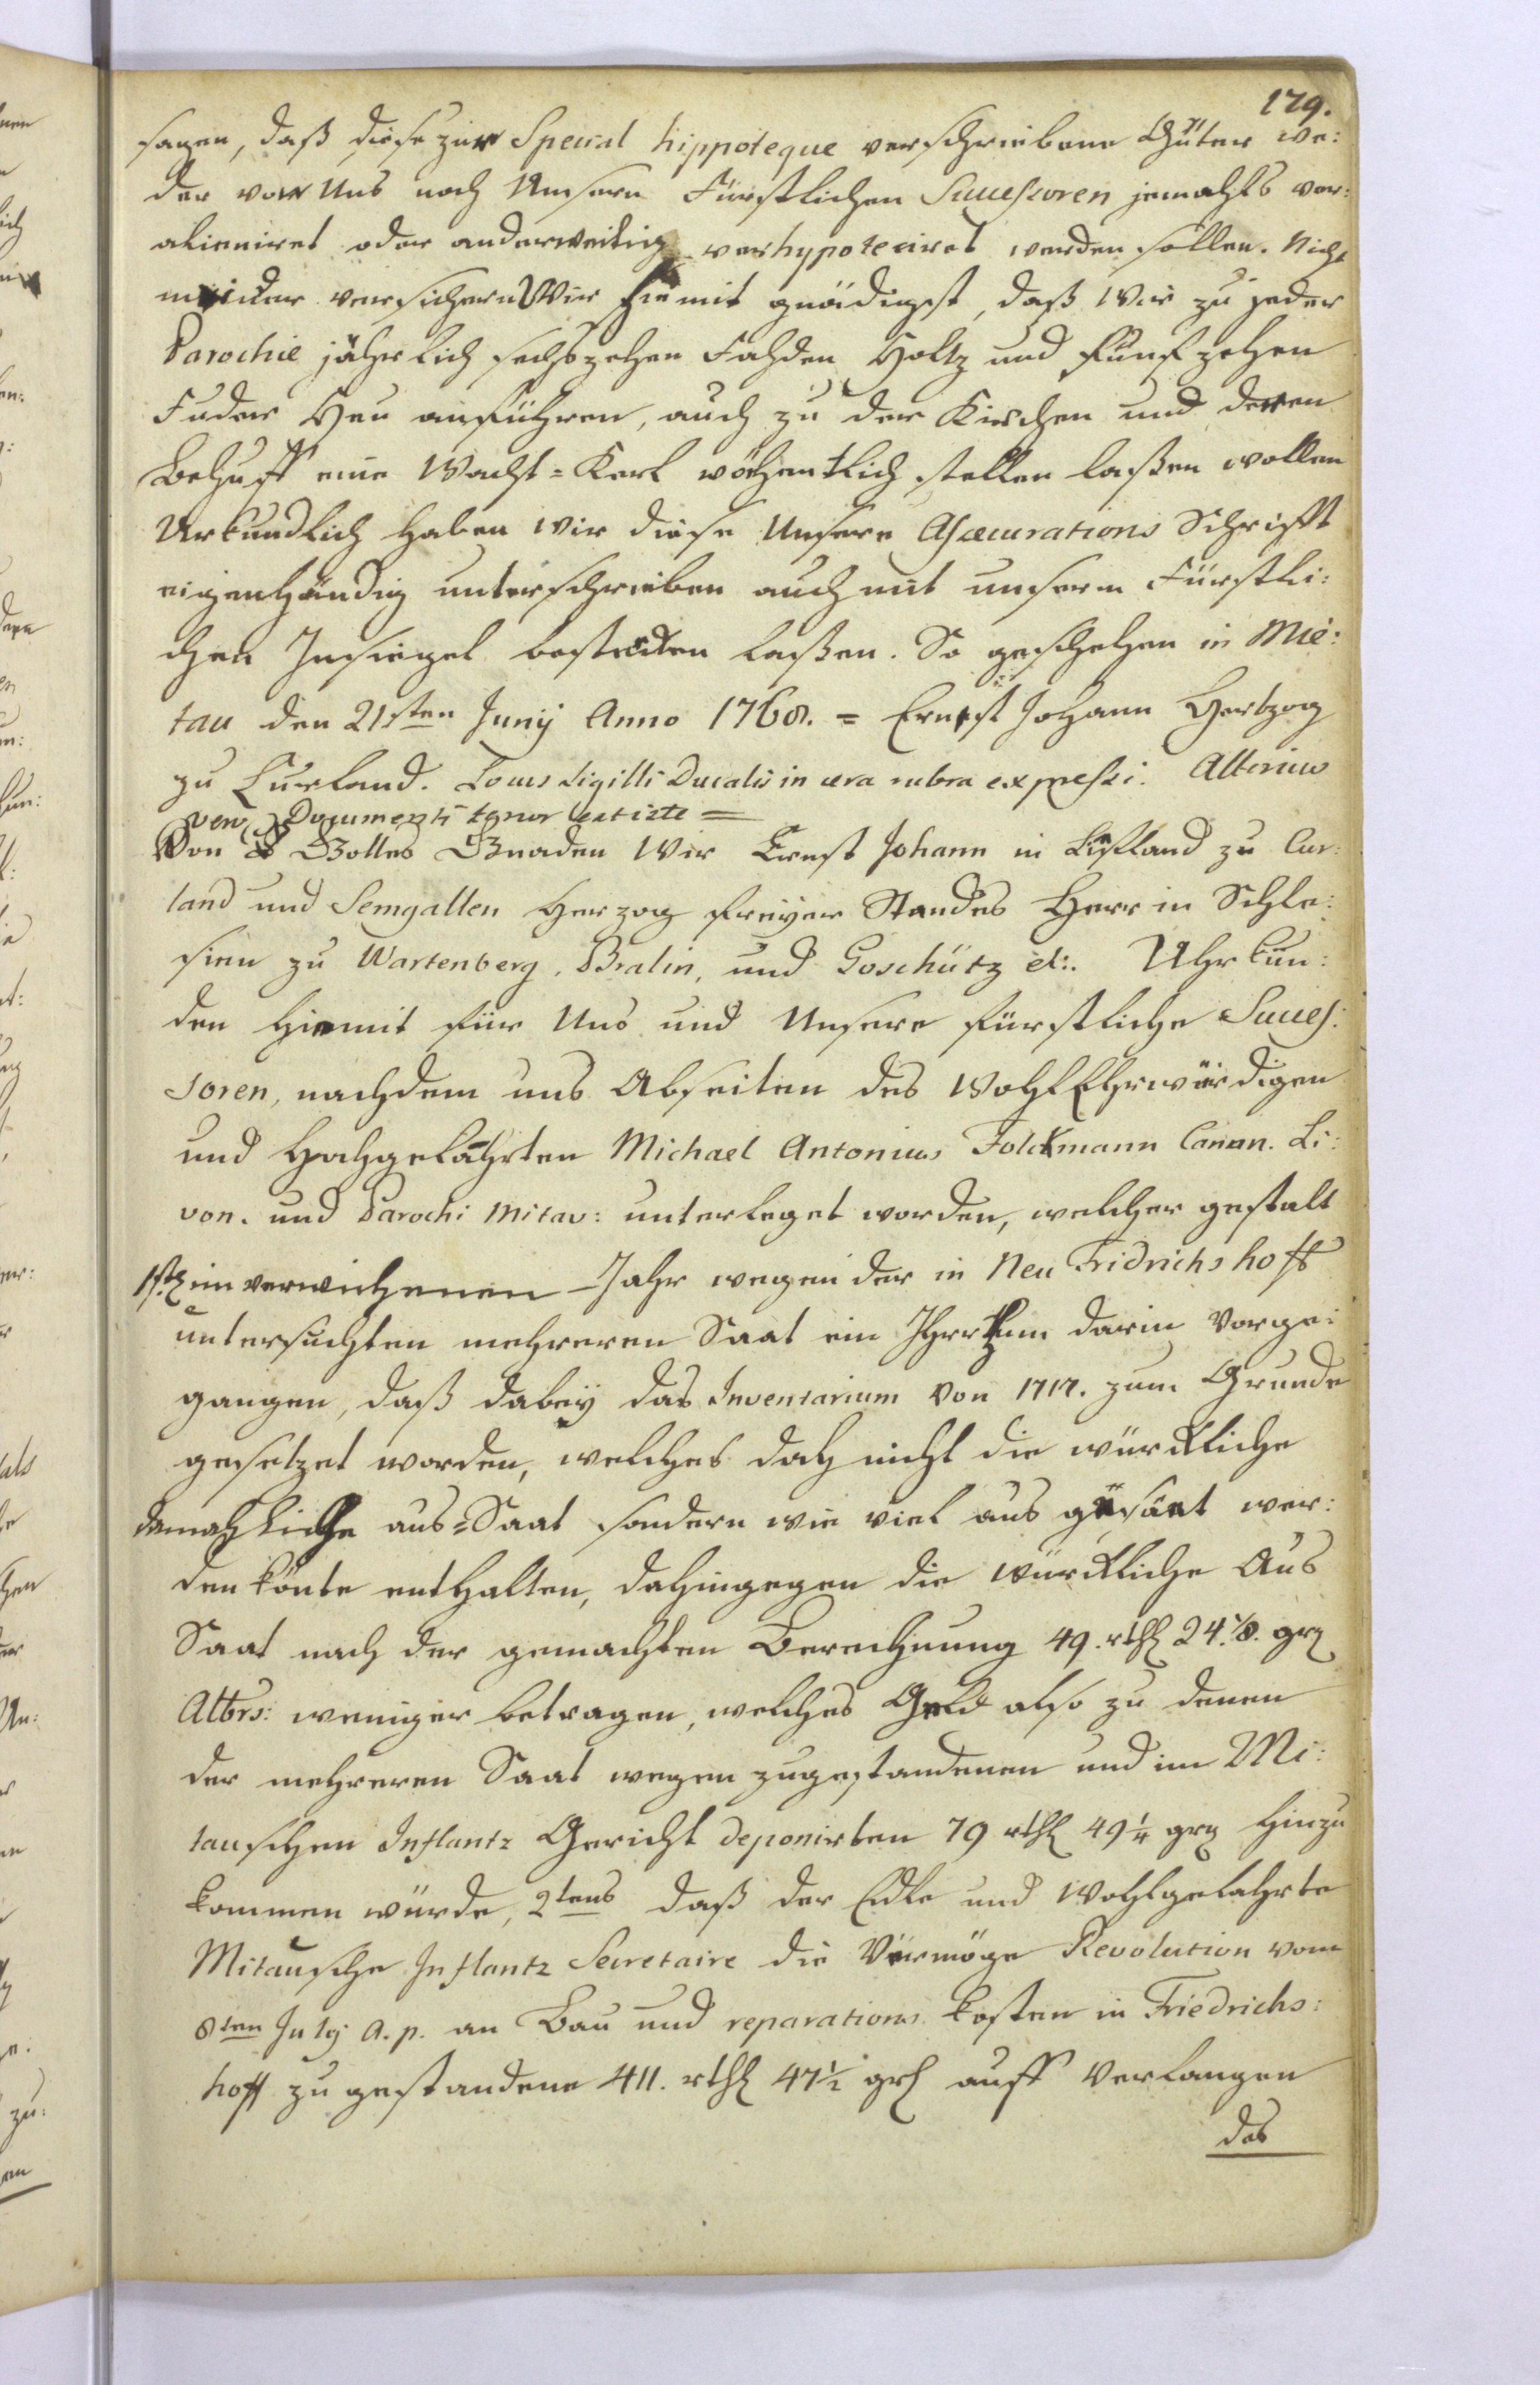 179.
sagen, daß diese zur Special hippoteque verschriebene Güter we:
der von Uns noch Unsern Fürstlichen Successoren jemahls ver:
alieniret oder anderweitig verhypoteciret werden sollen. Nicht
minder versichern Wir hiemit gnädigst, daß Wir zu jeder
Parochie jährlich sechszehen Fahden Holtz und funfzehen
Fuder Heu anführen, auch zu der Kirchen und deren
Behuff eine Wacht=Kerl wöchentlich stellen laßen wollen
Urkundlich haben wir diese Unsere Assecurations Schrifft
eigenhändig unterschrieben auch mit unserm Fürstli:
chen Insiegel bestercken laßen. So geschehen in Mie:
tau den 21sten Junij Anno 1768. = Ernst Johann Hertzog
zu Curland. Locus Sigilli Ducalis in cera rubra expressi. Alterius
vero Documenti tenor est iste =
Von Gottes Gnaden Wir Ernst Johann in Liefland zu Cur:
land und Semgallen Herzog freyer Standes Herr in Schle:
sien zu Wartenberg, Bralin, und Goschütz etc. Uhrkun:
den hiemit für Uns und Unsere fürstliche Succes:
soren, nachdem uns Abseiten des WohlEhrwürdigen
und Hochgelahrten Michael Antonius Folckmann Canon. Li:
von. und Parochi Mitav: unterleget worden, welcher gestalt
1st im verwichenen Jahr wegen der in Neu Fridrichshoff
untersuchten mehreren Saat ein Ihrrthum darin vorge:
gangen, daß dabey das Inventarium von 1717. zum Grunde
gesetzet worden, welches doch nicht die würckliche
damahlliche aus=Saat sondern wie viel aus gesäet wer:
den könte enthalten, dahingegen die würckliche Aus
Saat nach der gemachten Berechnung 49. rthl 24.⅞. gr
Albrs: weniger betragen, welches Geld also zu denen
der mehreren Saat wegen zugestandenen und im Mi:
tauschen Instantz Gericht deponirten 79 rthl 49¼ gr hinzu
kommen würde, 2tens daß der Edle und Wohlgelahrte
Mitausche Instantz Secretaire die Vermöge Resolution vom
8ten July a. p. an Bau und reparations kosten in Friedrichs:
hoff zugestandene 411. rthl 47½ gr auff Verlangen
des